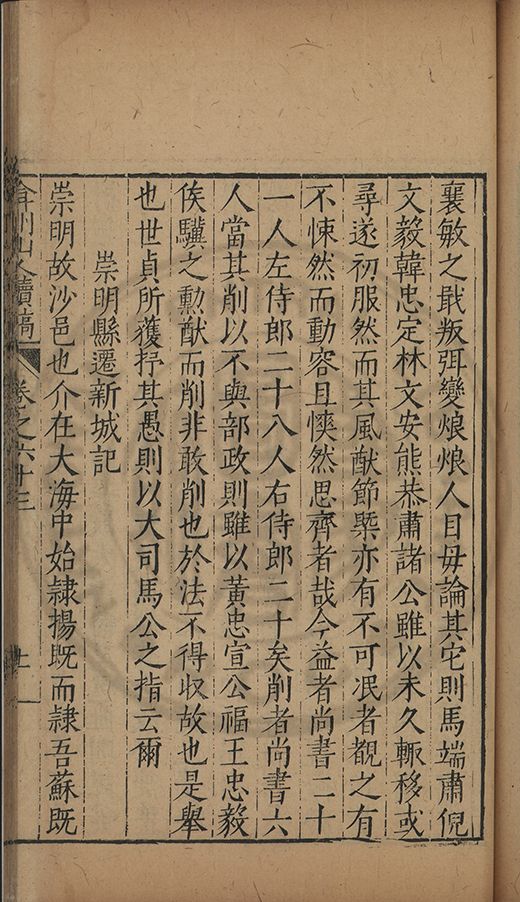 襄敏之戢叛弭變烺烺人目毋論其它則馬端肅倪
文毅韓忠定林文安熊恭肅諸公雖以未久輒移或
尋遂初服然而其風猷節槩亦有不可冺者覩之有
不悚然而動容且懊然思齊者哉今益者尚書二十
一人左侍郎二十八人右侍郎二十矣削者尚書六
人當其削以不與部政則雖以黃忠宣公福王忠毅
侯驥之勳猷而削非敢削也於法不得収故也是舉
也世貞所獲抒其愚則以大司馬公之指云爾
崇明縣遷新城記
崇明故沙邑也介在大海中始隷揚既而隷吾蘇既
弇州山人續稿 卷之六十三